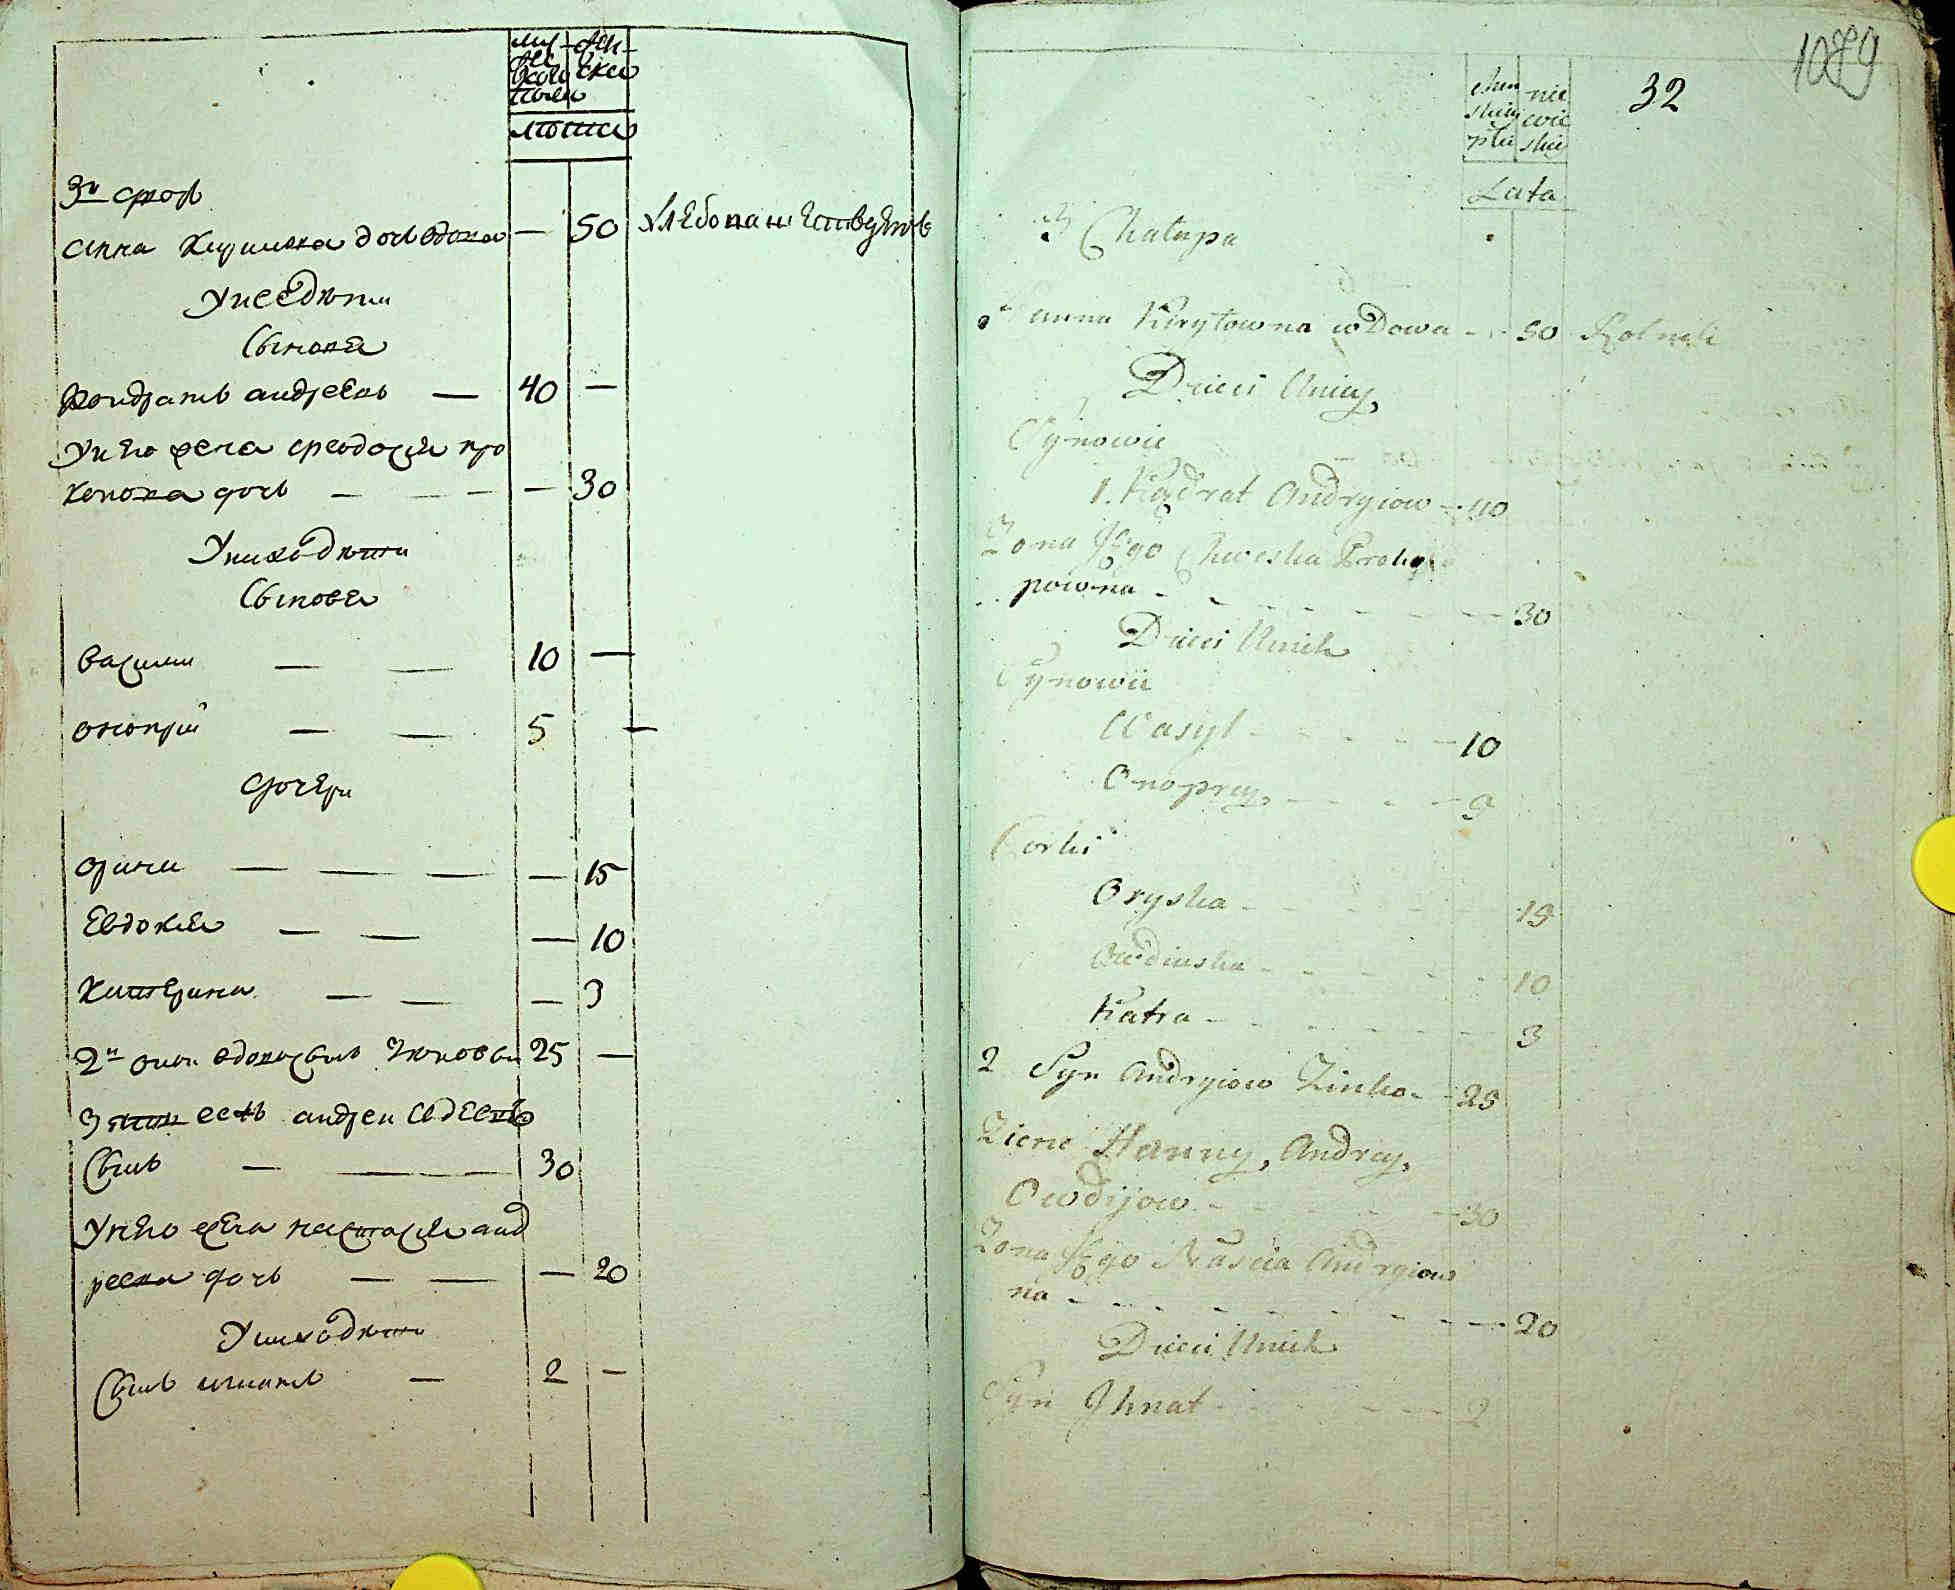 муже
ска
го
полу
жен
ска
лѣта
3й дворъ
Анна Кирилова дочь вдова — 50 хлебопашествуетъ
У нее дѣти
Сыновя
Кондратъ андреевъ — 40 —
У него жена Феодосия про
копова дочь — — — — 30
У них дѣти
Сыновя
василий — — 10 —
онопрій — — 5 —
дочери
орина — — — — 15
Евдокия — — — 10
Катерина — — — 3
2й сынъ вдовы Зѣновей 25 —
З ѧть ее андрей Авдеевъ
Сынъ — — 30
У него жена настасия анд
реева дочь — — — 20
У них дѣти
Сынъ игнатъ — 2 —
1089
32
men
skiey
płci
nie
wie
skiey
Lata
3 Chałupa
Hanna Kiryłowna wdowa - - 50 Rolnik
Dzieci Uniey
Synowie
1. Kądrat Andryiow - 40
Zona Jego Chweska Proko
powna - - - - - - - 30
Dzieci Unich
Synowie
Wasyl - - - - - 10
Onoprey - - - - 5
Corki
Oryska - - - - - 15
Owdiuska - - - - - 10
Katra - - - - - 3
2 Syn Andryiow Zinko - - 25
Zienc Hanny, Andrey,
Owdijow - - - - - 30
Zona Jego Nascia Andryiow
na - - - - - - - - 20
Dzieci Unich
Syn Ihnat - - - - 2